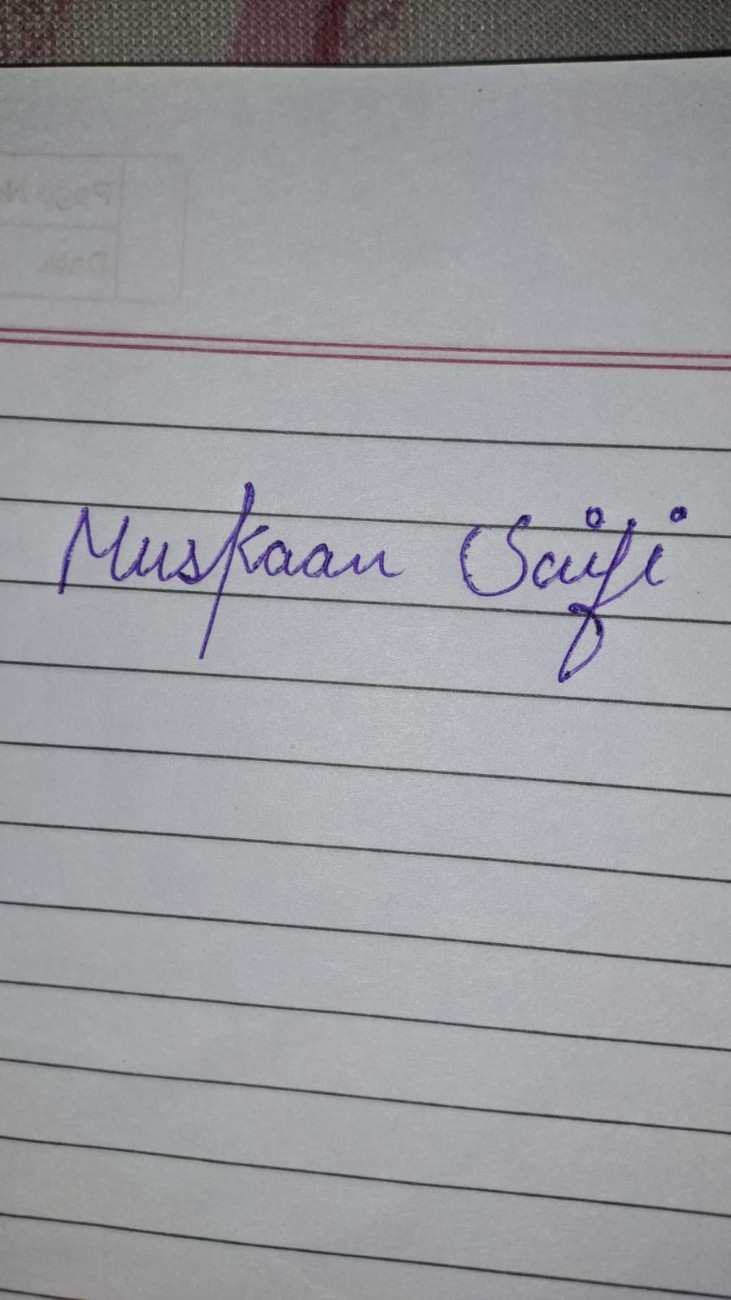 Page No.
Date
Muskaan Saifi